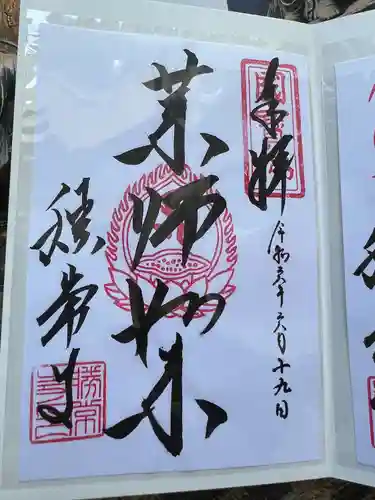 奉拝
令和六年六月十九日
薬師如来
勝常寺